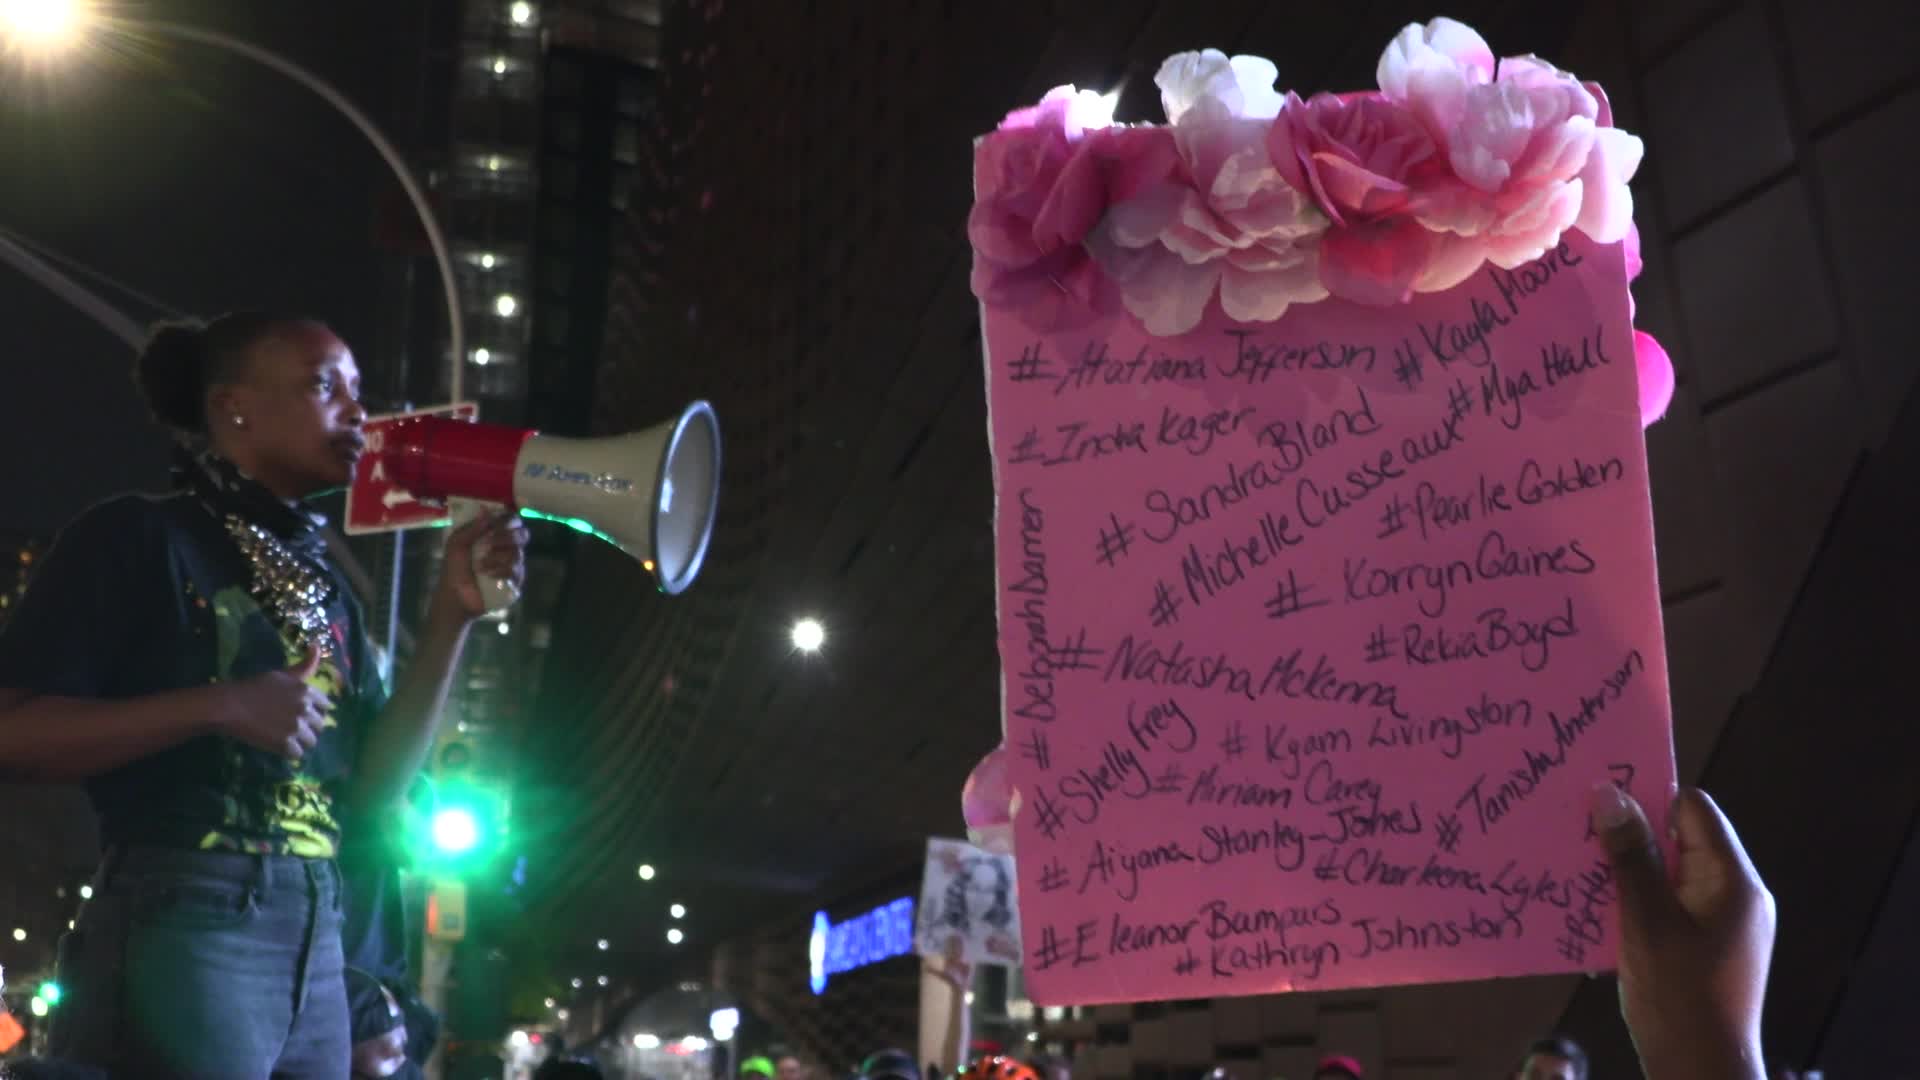 #Kayla Moore
#Atatiana Jefferson
#Mya Hall
#India Kager
#Sandra Bland
#Michelle Cusseaux
#Pearlie Golden
#KorrynGaines
#DeborahDanner
#RekiaBoyd
#Natasha McKenna
#Shelly Frey
#Kyam Livingston
#Tanisha Anderson
#Miriam Carey
#Aiyana Stanley-Jones
#Charleena Lyles
#Eleanor Bumpurs
#Kathryn Johnston
NO
A